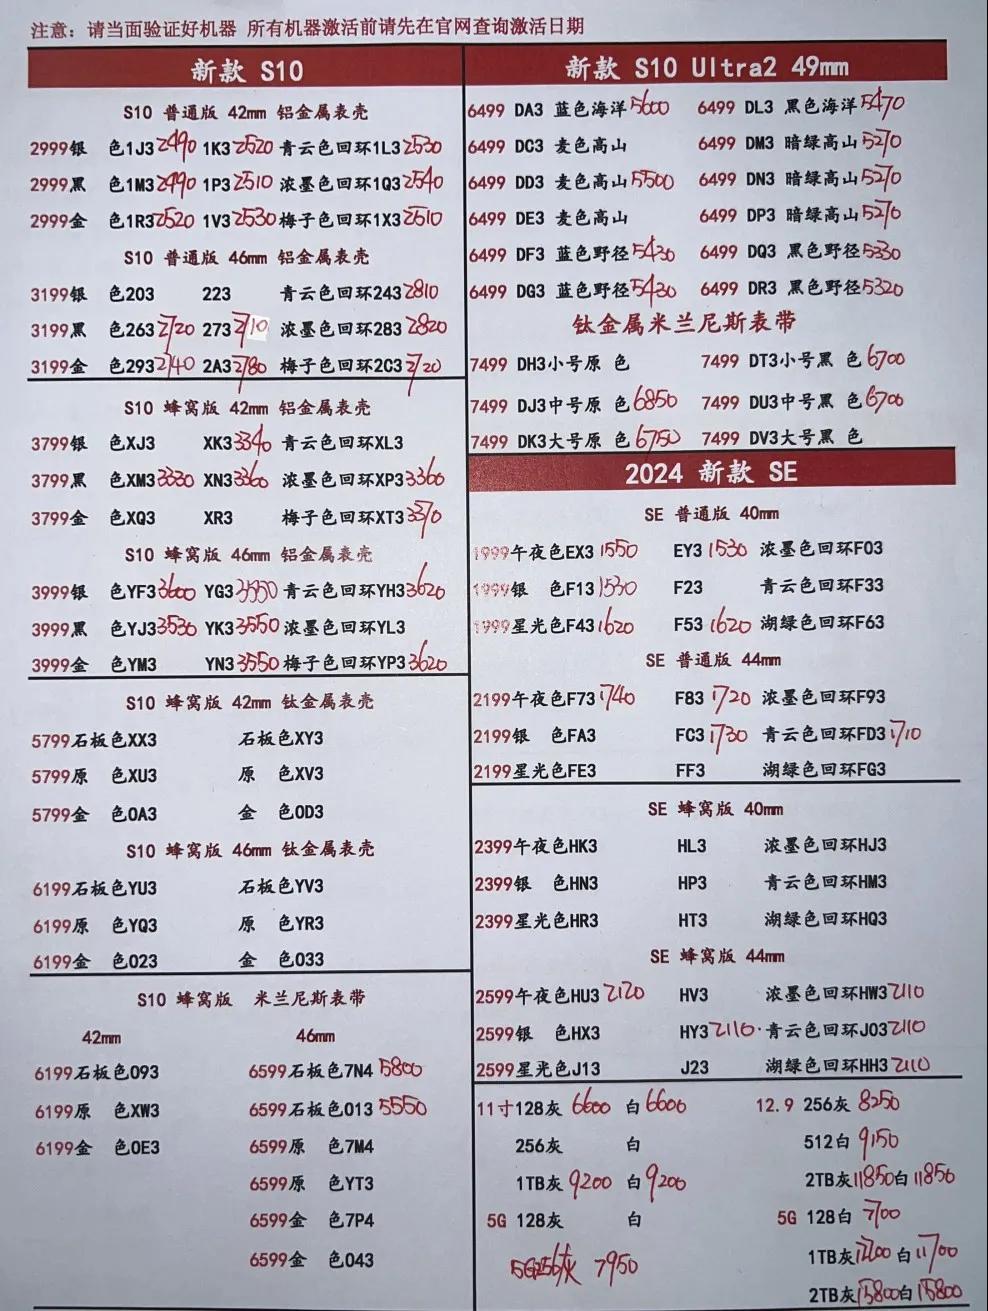 注意：请当面验证好机器 所有机器激活前请先在官网查询激活日期
新款 S10
S10 普通版 42mm 铝金属表壳
2999银 色1J3 2490 1K3 2520 青云色回环1L3 2530
2999黑 色1M3 2490 1P3 2510 浓墨色回环1Q3 2540
2999金 色1R3 2520 1V3 2530 梅子色回环1X3 2610
S10 普通版 46mm 铝金属表壳
3199银 色203 223 青云色回环243 2810
3199黑 色263 2720 273 2710 浓墨色回环283 2820
3199金 色293 2740 2A3 2780 梅子色回环2C3 2720
S10 蜂窝版 42mm 铝金属表壳
3799银 色XJ3 XK3 3340 青云色回环XL3
3799黑 色XM3 3330 XN3 3360 浓墨色回环XP3 3360
3799金 色XQ3 XR3 梅子色回环XT3 3370
S10 蜂窝版 46mm 铝金属表壳
3999银 色YF3 3600 YG3 3550 青云色回环YH3 3620
3999黑 色YJ3 3530 YK3 3550 浓墨色回环YL3
3999金 色YM3 YN3 3550 梅子色回环YP3 3620
S10 蜂窝版 42mm 钛金属表壳
5799石板色XX3 石板色XY3
5799原 色XU3 原 色XV3
5799金 色0A3 金 色0D3
S10 蜂窝版 46mm 钛金属表壳
6199石板色YU3 石板色YV3
6199原 色YQ3 原 色YR3
6199金 色023 金 色033
S10 蜂窝版 米兰尼斯表带
42mm 46mm
6199石板色093 6599石板色7N4 5800
6199原 色XW3 6599石板色013 5550
6199金 色0E3 6599原 色7M4
6599原 色YT3
6599金 色7P4
6599金 色043
新款 S10 Ultra2 49mm
6499 DA3 蓝色海洋 5600 6499 DL3 黑色海洋 5470
6499 DC3 麦色高山 6499 DM3 暗绿高山 5270
6499 DD3 麦色高山 5500 6499 DN3 暗绿高山 5270
6499 DE3 麦色高山 6499 DP3 暗绿高山 5270
6499 DF3 蓝色野径 5430 6499 DQ3 黑色野径 5330
6499 DG3 蓝色野径 5430 6499 DR3 黑色野径 5320
钛金属米兰尼斯表带
7499 DH3小号原 色 7499 DT3小号黑 色 6700
7499 DJ3中号原 色 6850 7499 DU3中号黑 色 6700
7499 DK3大号原 色 6750 7499 DV3大号黑 色
2024 新款 SE
SE 普通版 40mm
1999午夜色EX3 1550 EY3 1530 浓墨色回环F03
1999银 色F13 1530 F23 青云色回环F33
1999星光色F43 1620 F53 1620 湖绿色回环F63
SE 普通版 44mm
2199午夜色F73 1740 F83 1720 浓墨色回环F93
2199银 色FA3 FC3 1730 青云色回环FD3 1710
2199星光色FE3 FF3 湖绿色回环FG3
SE 蜂窝版 40mm
2399午夜色HK3 HL3 浓墨色回环HJ3
2399银 色HN3 HP3 青云色回环HM3
2399星光色HR3 HT3 湖绿色回环HQ3
SE 蜂窝版 44mm
2599午夜色HU3 2120 HV3 浓墨色回环HW3 2110
2599银 色HX3 HY3 2110 青云色回环J03 2110
2599星光色J13 J23 湖绿色回环HH3 2110
11寸128灰 6600 白 6600 12.9 256灰 8250
256灰 白 512白 9150
1TB灰 9200 白 9200 2TB灰 11850 白 11850
5G 128灰 白 5G 128白 7700
5G256灰 7950 1TB灰 12200 白 11700
2TB灰 15800 白 15800